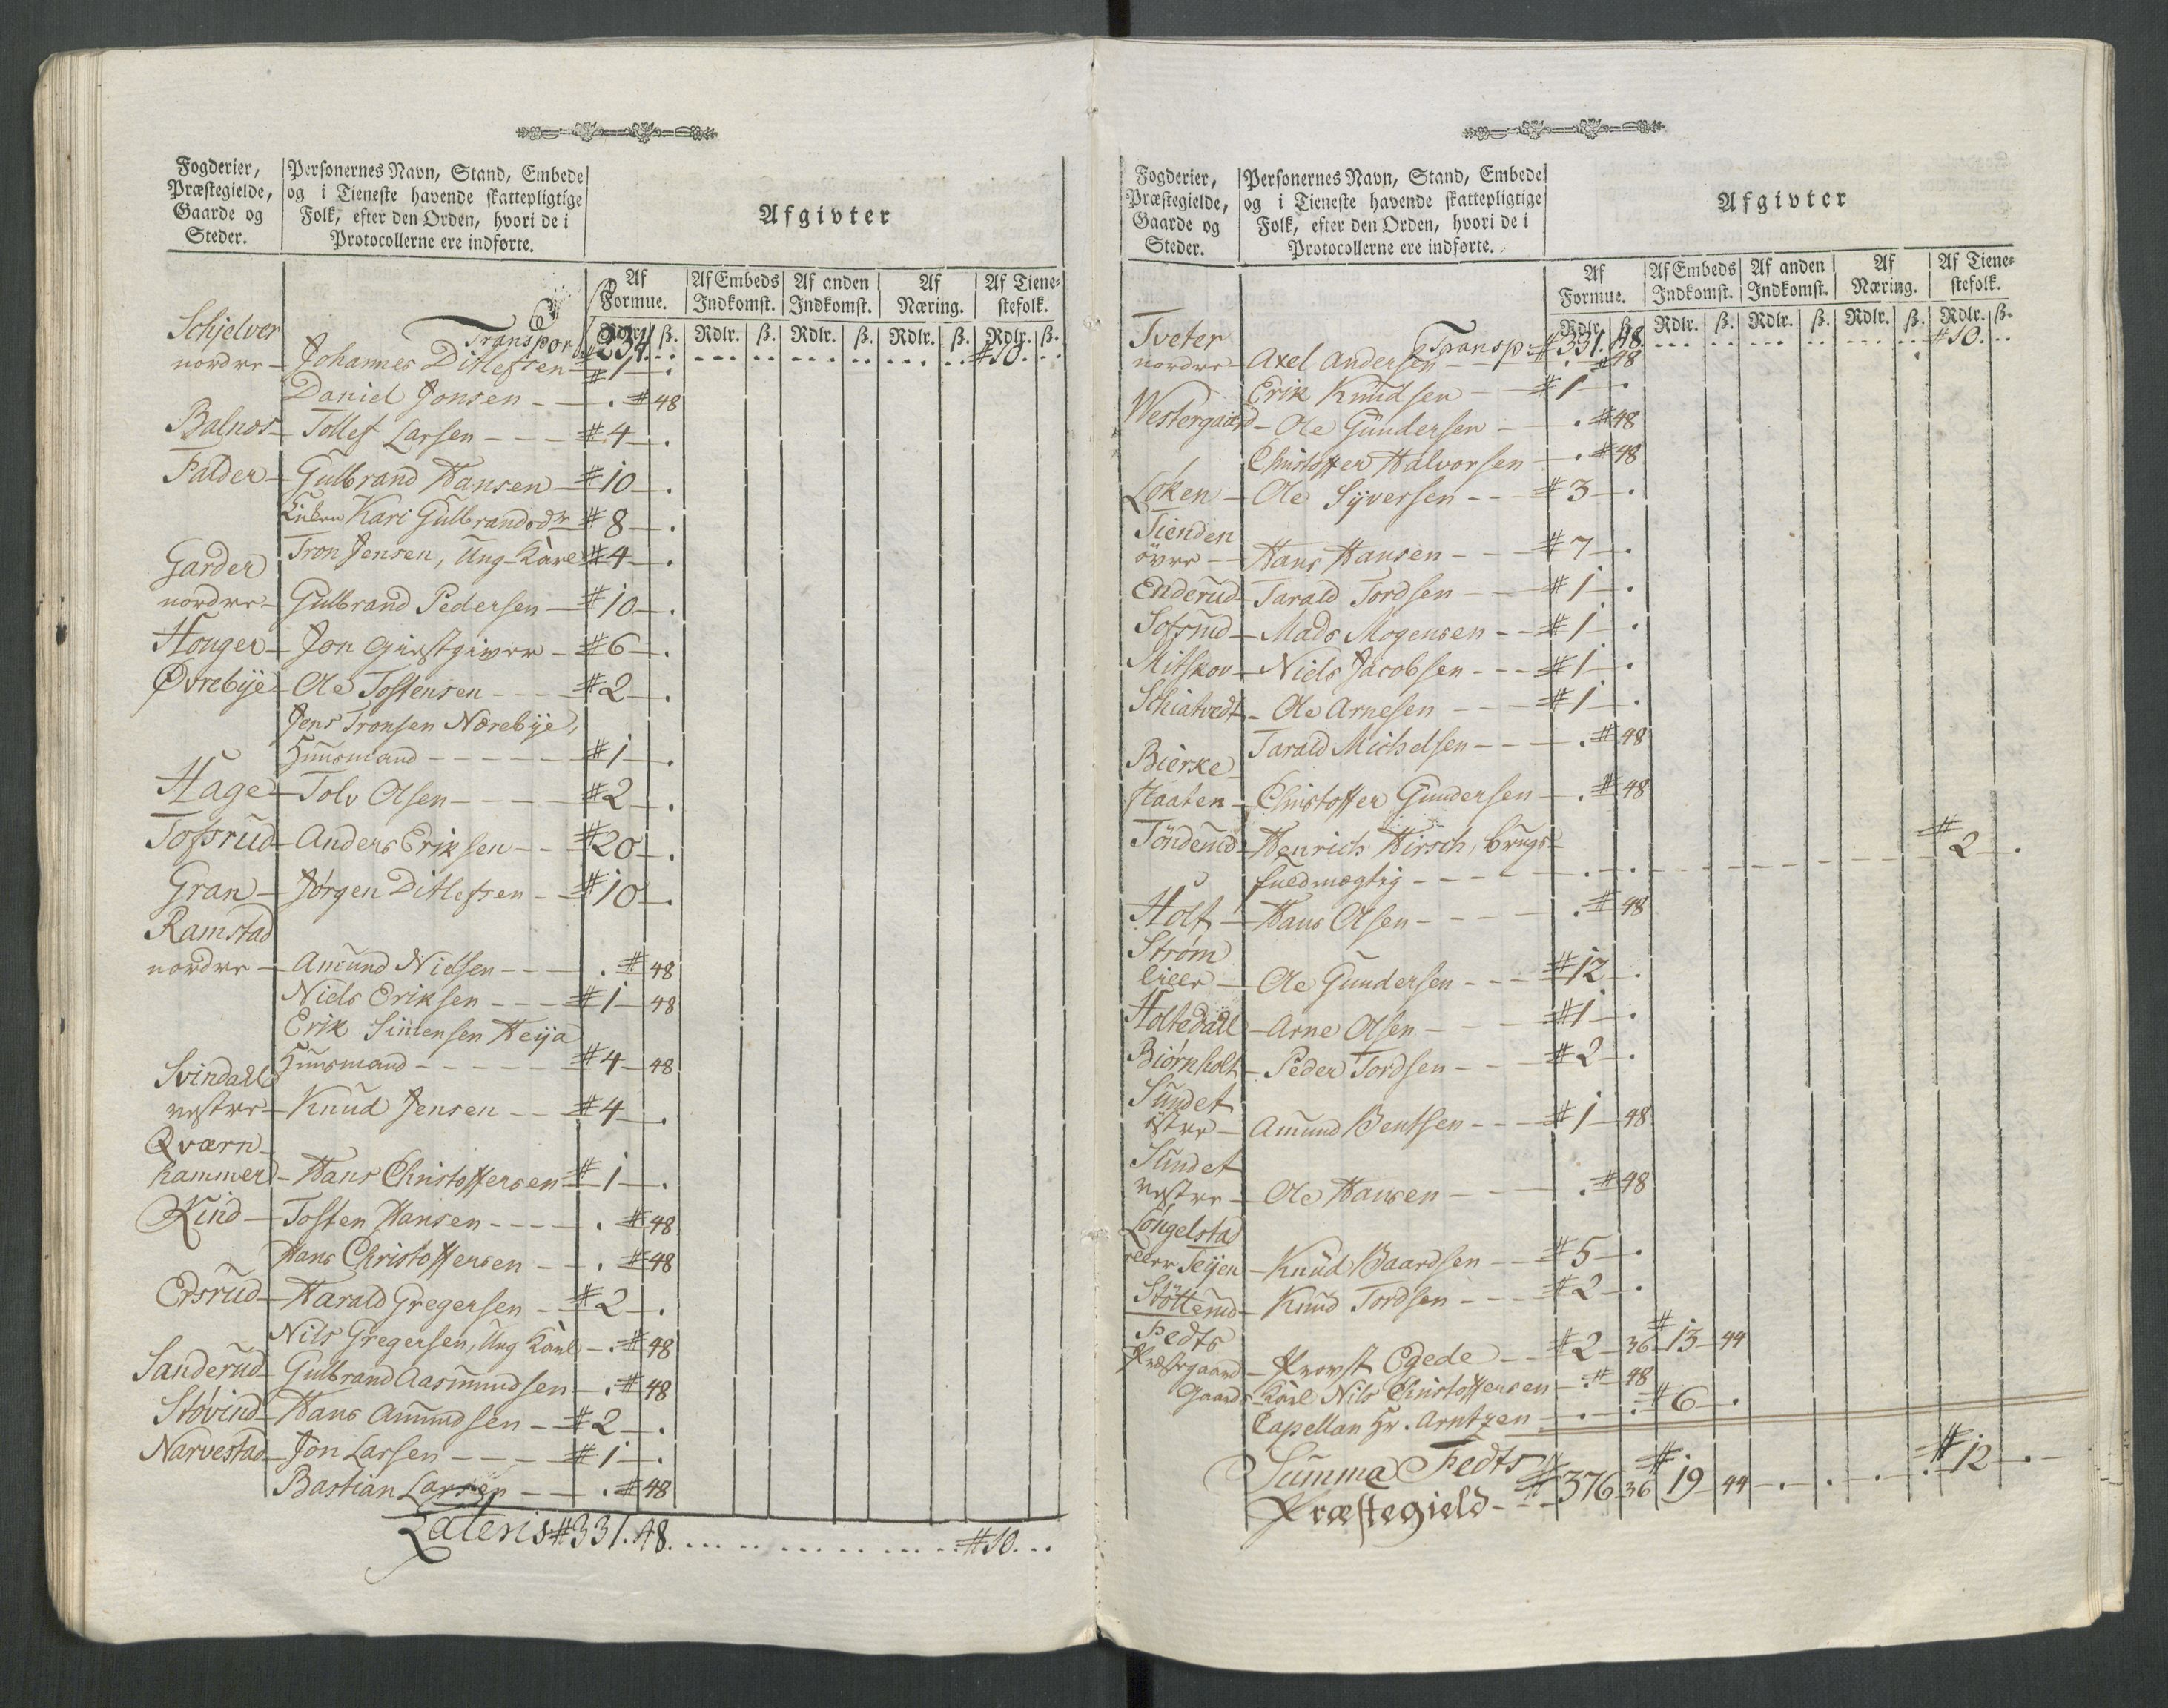 Fogderier, Præstegielde, Gaarde og Steder.
Personernes Navn, Stand, Embede og i Tieneste havende skattepligtige Folk, efter den Orden, hvori de i Protocollerne ere indførte.
Afgivter
Af Formue. Af Embeds Indkomst. Af anden Indkomst. Af Næring. Af Tienestefolk.
Rdlr. ß. Rdlr. ß. Rdlr. ß. Rdlr. ß. Rdlr. ß.
Transport #234. . . #10. . .
Schjelver
nordre - Johannes Ditlefsen #1 - .
Daniel Jonsen - - . #48
Balnos - Tollef Larsen - - - #4 - .
Falder - Gulbrand Hansen - #10 - .
Enken Kari Gulbrandsdr #8 - .
Tron Jensen, Ung-Karl #4 - .
Garder
nordre - Gulbrand Pedersen - #10 - .
Houger - Jon Giestgiver - #6 - .
Øvrebÿe - Ole Tostensen - - - #2 - .
Jens Tronsen Nærebÿe,
Huusmand - - - - - #1 - .
Hage - Tolv Olsen - - - - #2 - .
Tofsrud - Anders Eriksen - - #20 - .
Gran - Jørgen Ditlefsen - - #10 - .
Ramstad
nordre - Amund Nielsen - - - . #48
Niels Eriksen - - - #1 - 48
Erik Simensen Heÿa
Huusmand - - - - - #4 - 48
Svindall
vestre - Knud Jensen - - #4 - .
Qværn-
hammer - Hans Christoffersen #1 - .
Kind - Tosten Hansen - - - - . #48
Hans Christoffersen - - . #48
Ersrud - Harald Gregersen - #2 - .
Nils Gregersen, Ung Karl - . #48
Sanderud - Gulbrand Aasmundsen - . #48
Støvind - Hans Amundsen - - #2 - .
Narvestad - Jon Larsen - - - - #1 - .
Bastian Larsen - - . #48
Lateris #331. 48. . . . #10. . .
Fogderier, Præstegielde, Gaarde og Steder.
Personernes Navn, Stand, Embede og i Tieneste havende skattepligtige Folk, efter den Orden, hvori de i Protocollerne ere indførte.
Afgivter
Af Formue. Af Embeds Indkomst. Af anden Indkomst. Af Næring. Af Tienestefolk.
Rdlr. ß. Rdlr. ß. Rdlr. ß. Rdlr. ß. Rdlr. ß.
Transp: #331. 48. . . . #10. . .
Tveter
nordre - Axel Andersen - - - . #48
Erik Knudsen - - #1 - .
Westergaard - Ole Gundersen - - . #48
Christoffer Halvorsen - . #48
Løken - Ole Sÿversen - - - #3 - .
Tienden
övre - - Hans Hansen - - - #7 - .
Enderud - Tarald Tordsen - - - #1 - .
Sofsrud - Mads Mogensen - - #1 - .
Mitskov - Niels Jacobsen - - - #1 - .
Schiatvedt - Ole Arnesen - - - #1 - .
Tarald Michelsen - - - . #48
Bierke-
Haaten - Christoffer Gundersen - . #48
Töndерud - Henrich Hirsch, brugs-
fuldmægtig - - - - - . - . #2 - .
Holt - Hans Olsen - - - - . #48
Strøm
lille - Ole Gundersen - - - #12 - .
Holtedall - Arne Olsen - - - #1 - .
Biørnholt - Peder Tordsen - - - #2 - .
Sundet
östre - Amund Bentsen - - - #1 - 48
Sundet
vestre - Ole Hansen - - - . #48
Löngelstad
eller Teÿen - Knud Baardsen - - #5 - .
Stöttерud - Knud Tordsen - - - #2 - .
Hedts
Præstegaard - Provst Egede - - #2 - 36 #13 - 44
Gaards-Karl Nils Christoffersen - . #48
Capellan Hr. Arntzen - . - . #6 - .
Summa Hedts
Præstegield - - #376 - 36 #19 - 44 - . - . - . #12 - .